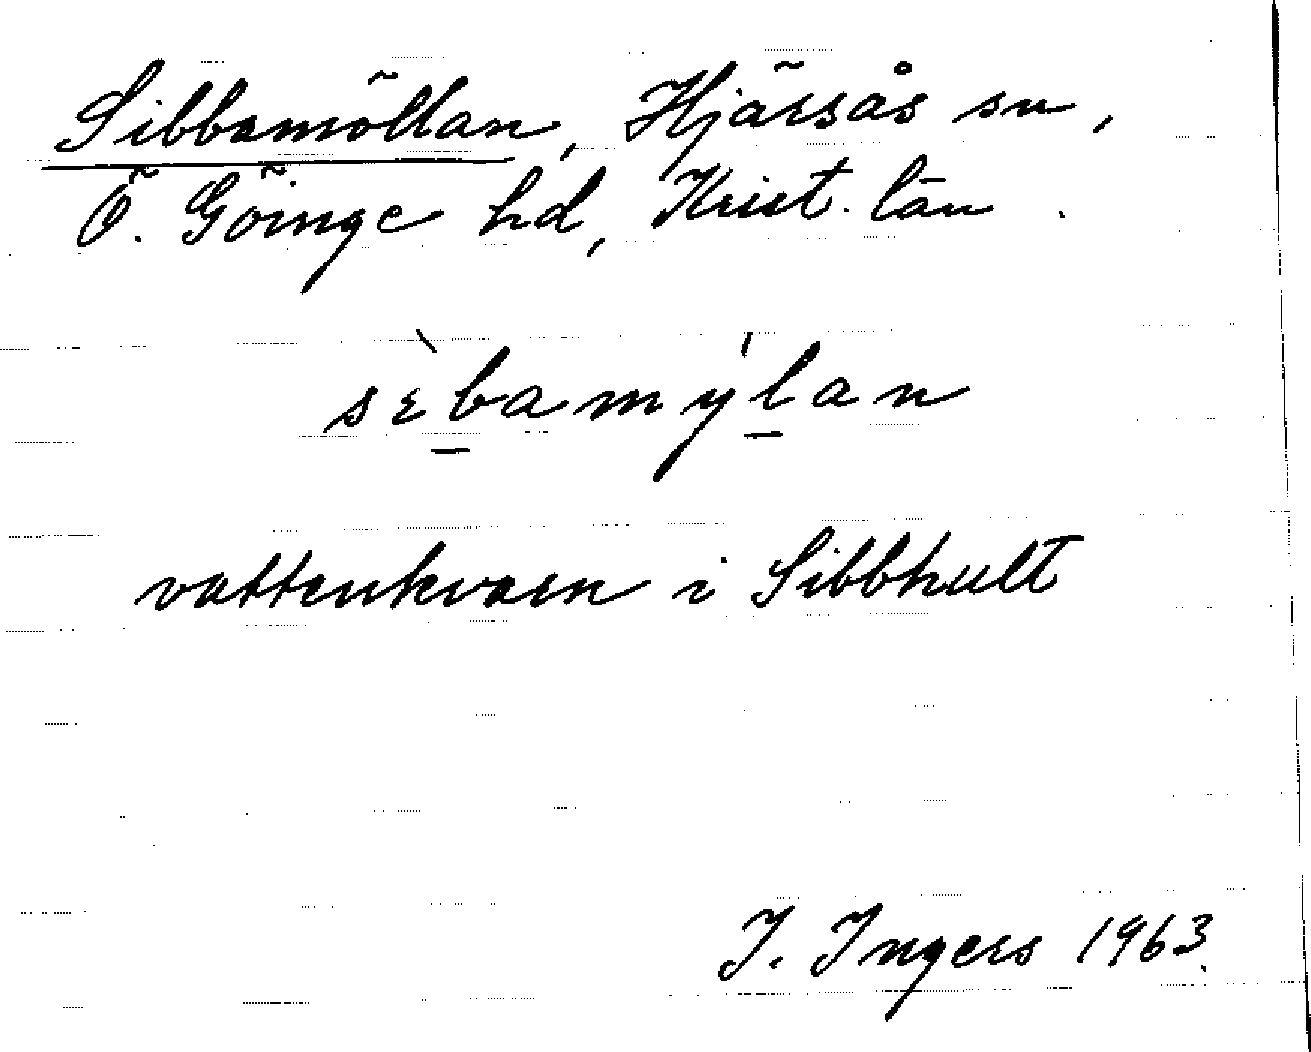 Sibbamöllan, Hjärsås sn,
Ö. Göinge hd, Krist. län.
sɛ̀b̲amýl̲an
vattenkvarn i Sibbhult
I. Ingers 1963.